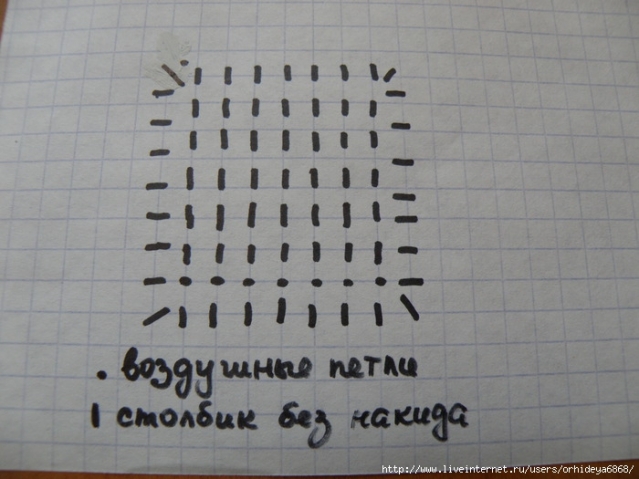 . воздушные петли
I столбик без накида
http://www.liveinternet.ru/users/orhideya6868/